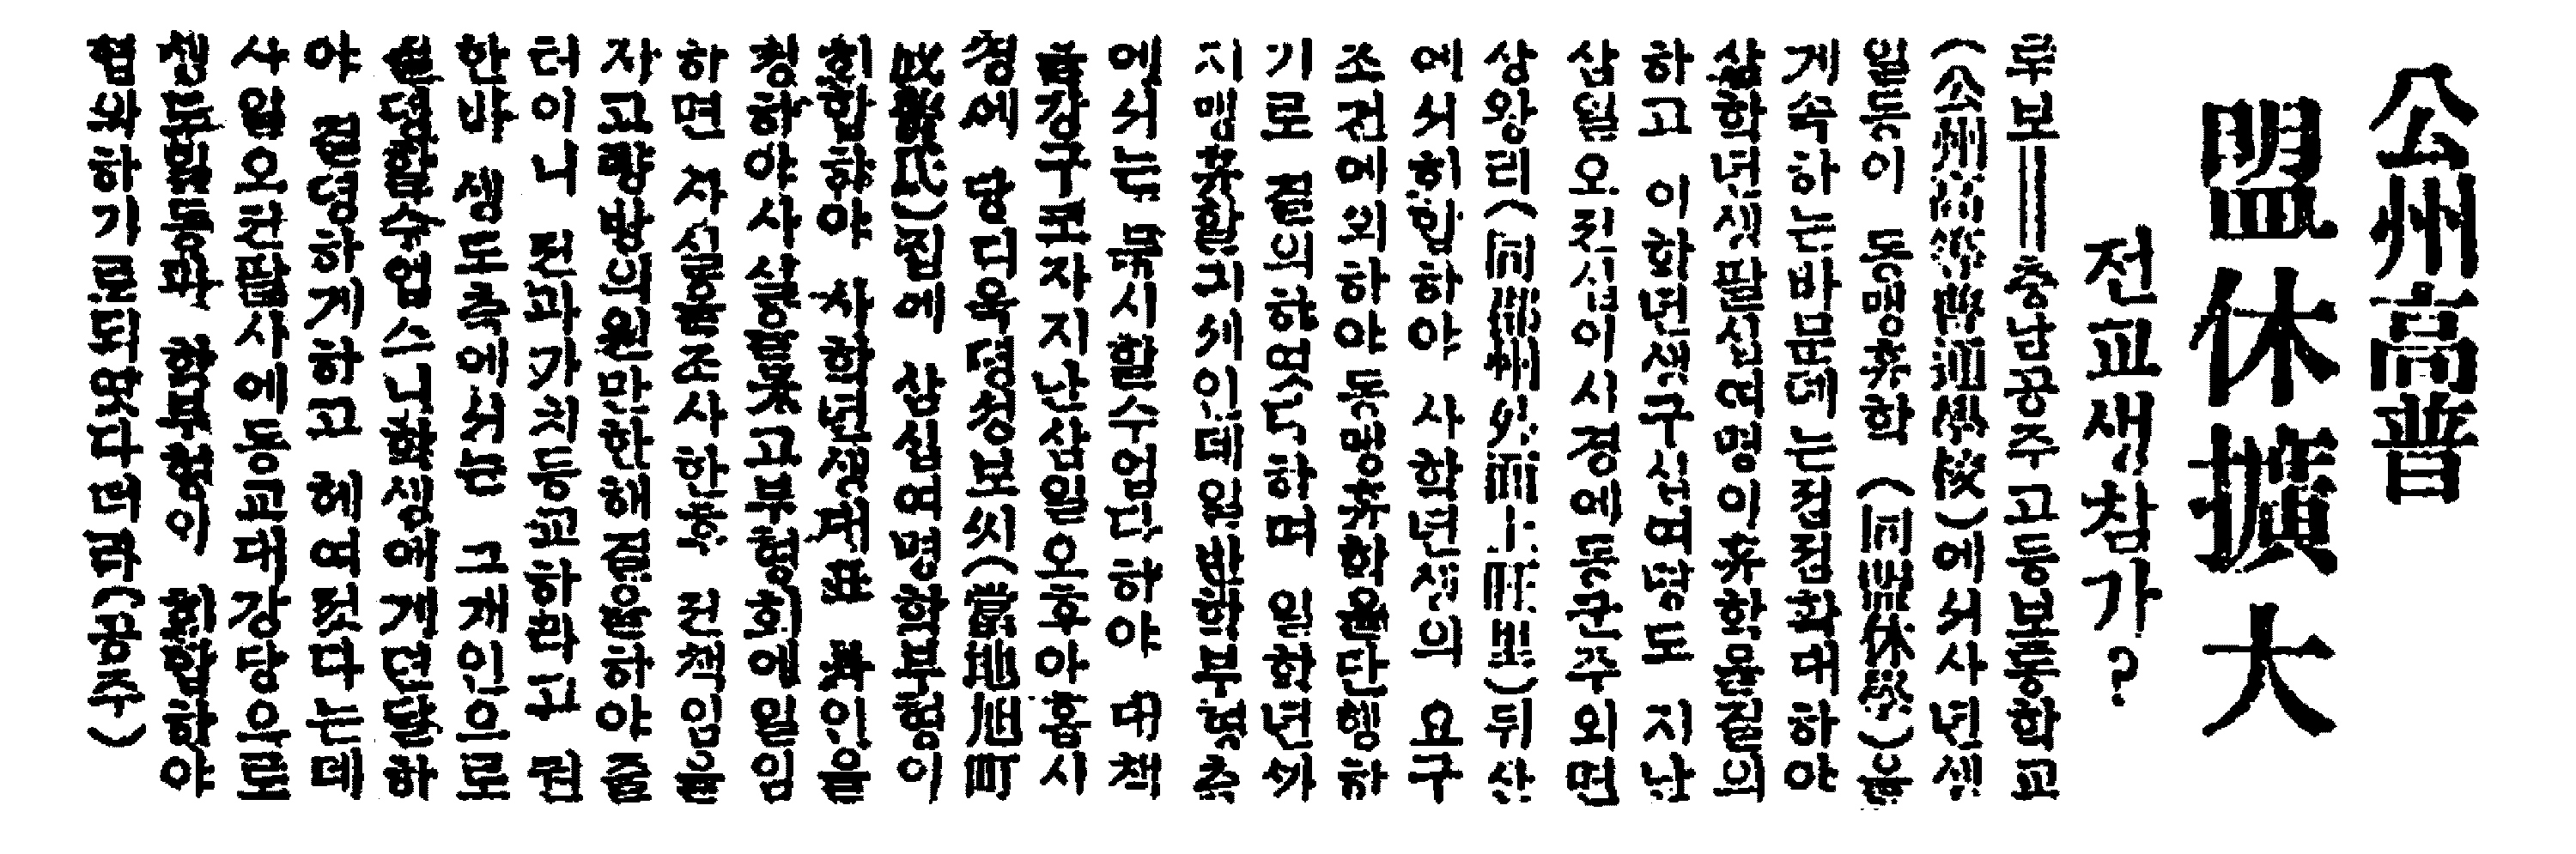 公州高普
盟休擴大
전교생참가?
루보===충남공주고등보통학교
(公州高等普通學校)에서사년생
일동이 동맹휴학 (同盟休學)을
게속하는바 데는점점확대하야
삼학년생팔십여명의휴학 의
하고 이학년생구십여명도 지난
삼일오전십이시경에 공주외면
상왕리(同 州 面上旺里)뒤산
에서회합하야 사학년생의 요구
조건에의하야동맹휴학을단행하
기로 결의하엿다하며 일학년까
지맹휴할긔세인데일반학부형측
에서는 시할수업다하야 대책
을강구코자지난삼일오후아홉시
경에 당디욱뎡청보씨( 旭町
氏)집에 삼십여명학부형이
회합하야 사학년생대표 인을
청하야사실을뭇고부형회에일임
하면 자신들 조사한후 전책임을
자고량방의원만한해결을 하야줄
터이니 전과가치등교하라고 권
한바 생도측에서는 그개인으로
결뎡할수업스니학생에게뎐달하
야 결뎡하게하고 헤여젓다는데
사일오전팔시에동교대강당으로
생도일동과 학부형이 회합하야
협의하기로되엿다더라(공주)